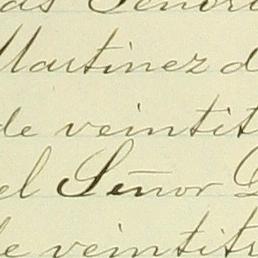 as Señori
Martinez d
de veintit
el Señor
de veintitr